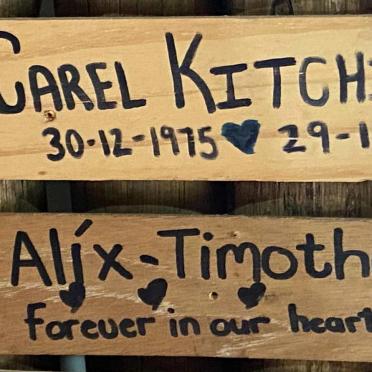 CAREL KITCH
30-12-1975 ♥ 29-1
Alíx-Timoth
Forever in our heart